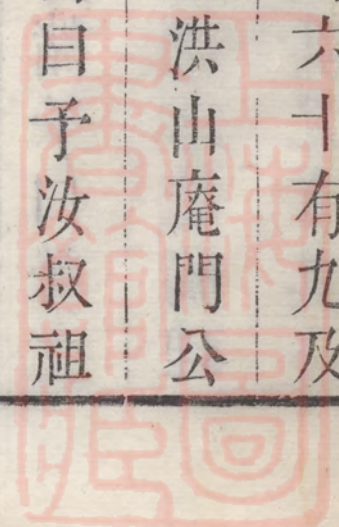 六十有九及
洪山庵門公
曰予汝叔祖